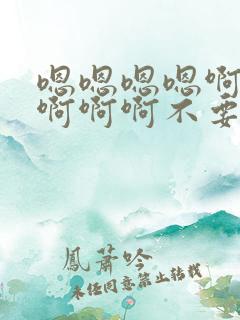 嗯嗯嗯嗯啊
啊啊啊不要
鳳蕭吟
未经同意禁止转载